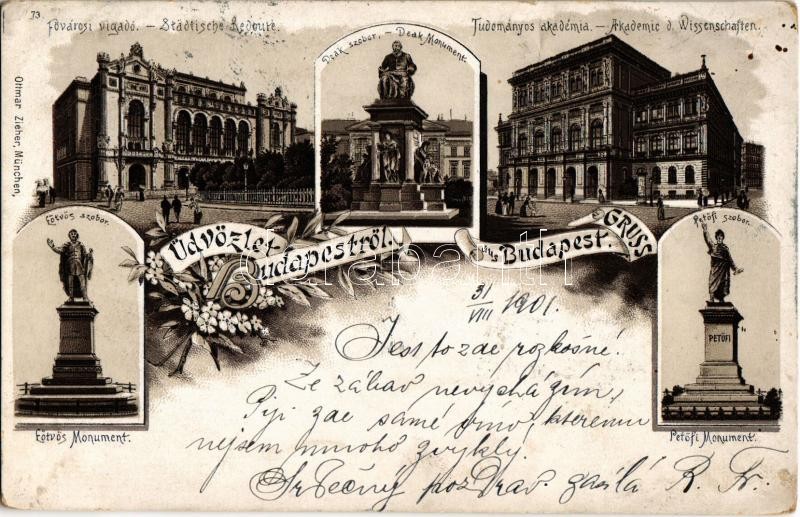 73
Fővárosi vigadó. – Städtische Redoute.
Deák szobor. – Deák Monument.
Tudományos akadémia. – Akademie d. Wissenschaften.
Ottmar Zieher, München,
Eötvös szobor.
Petőfi szobor.
Üdvözlet Budapestről.
GRUSS aus Budapest.
darabanth
PETŐFI
Eötvös Monument.
Petőfi Monument.
31/VIII 1901.
Jest to zde rozkošné.
Ze zábav nevycházím,
Piji zde samé víno, kterému
nejsem mnoho zvyklý.
Srdečný pozdrav zasílá R. Fr.